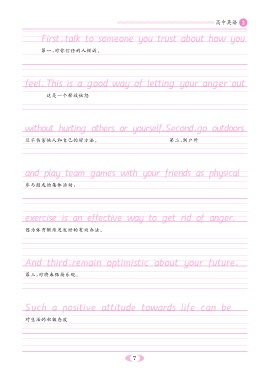 高中英语
First,talk to someone you trust about how you
第一,对你信任的人倾诉。
feel.This is a good way of letting your anger out
这是一个释放愤怒
without hurting others or yourself.Second,go outdoors
且不伤害他人和自己的好方法。 第二,到户外
and play team games with your friends as physical
参与朋友的集体活动,
exercise is an effective way to get rid of anger.
因为体育锻炼是发泄的有效办法。
And third,remain optimistic about your future.
第三,对将来保持乐观。
Such a positive attitude towards life can be
对生活的积极态度
7